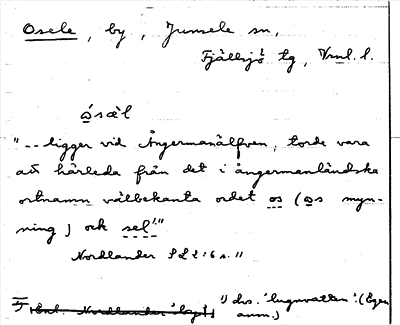 Osele, by, Junsele sn,
Fjällsjö tg, Vrml. l.
ó̲sæ̀l
"--ligger vid Ångermanälfven, torde vara
att härleda från det i ångermanländska
ortnamn välbekanta ordet os (os myn-
ning) och sel¹⁾"
Nordlander SL 2:6 s. 11
1) dvs. 'lugnvatten'. (Egen
anm.)